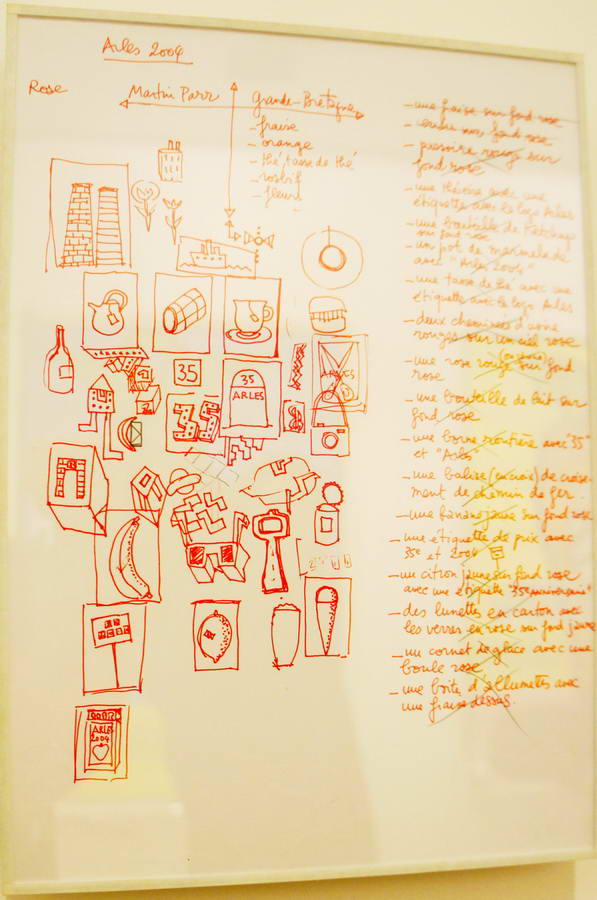 Arles 2004
Rose
Martin Parr
Grande-Bretagne
- fraise
- orange
- thé tasse de thé
- rosbif
- fleurs
35
35
ARLES
35
ARLES
ARLES
2004
- une fraise sur fond rose
- fond rose
- passoire rouge sur
fond rose
- une théière avec une
étiquette avec le logo Arles
- une bouteille de Ketchup
sur fond rose
- un pot de marmelade
avec "Arles 2004"
- une tasse de thé avec une
étiquette avec le logo Arles
- deux cheminées d'usine
rouges sur un ciel rose
- une rose rouge sur fond
rose
- une bouteille de lait sur
fond rose
- une borne routière avec "35"
et "Arles"
- une balise (en croix) de croise-
ment de chemin de fer.
- une banane jaune sur fond rose
- une étiquette de prix avec
35e et 2004
- un citron jaune sur fond rose
avec une étiquette "35e anniversaire"
- des lunettes en carton avec
les verres en rose sur fond jaune
- un cornet de glace avec une
boule rose
- une boîte d'allumettes avec
une fraise dessus.